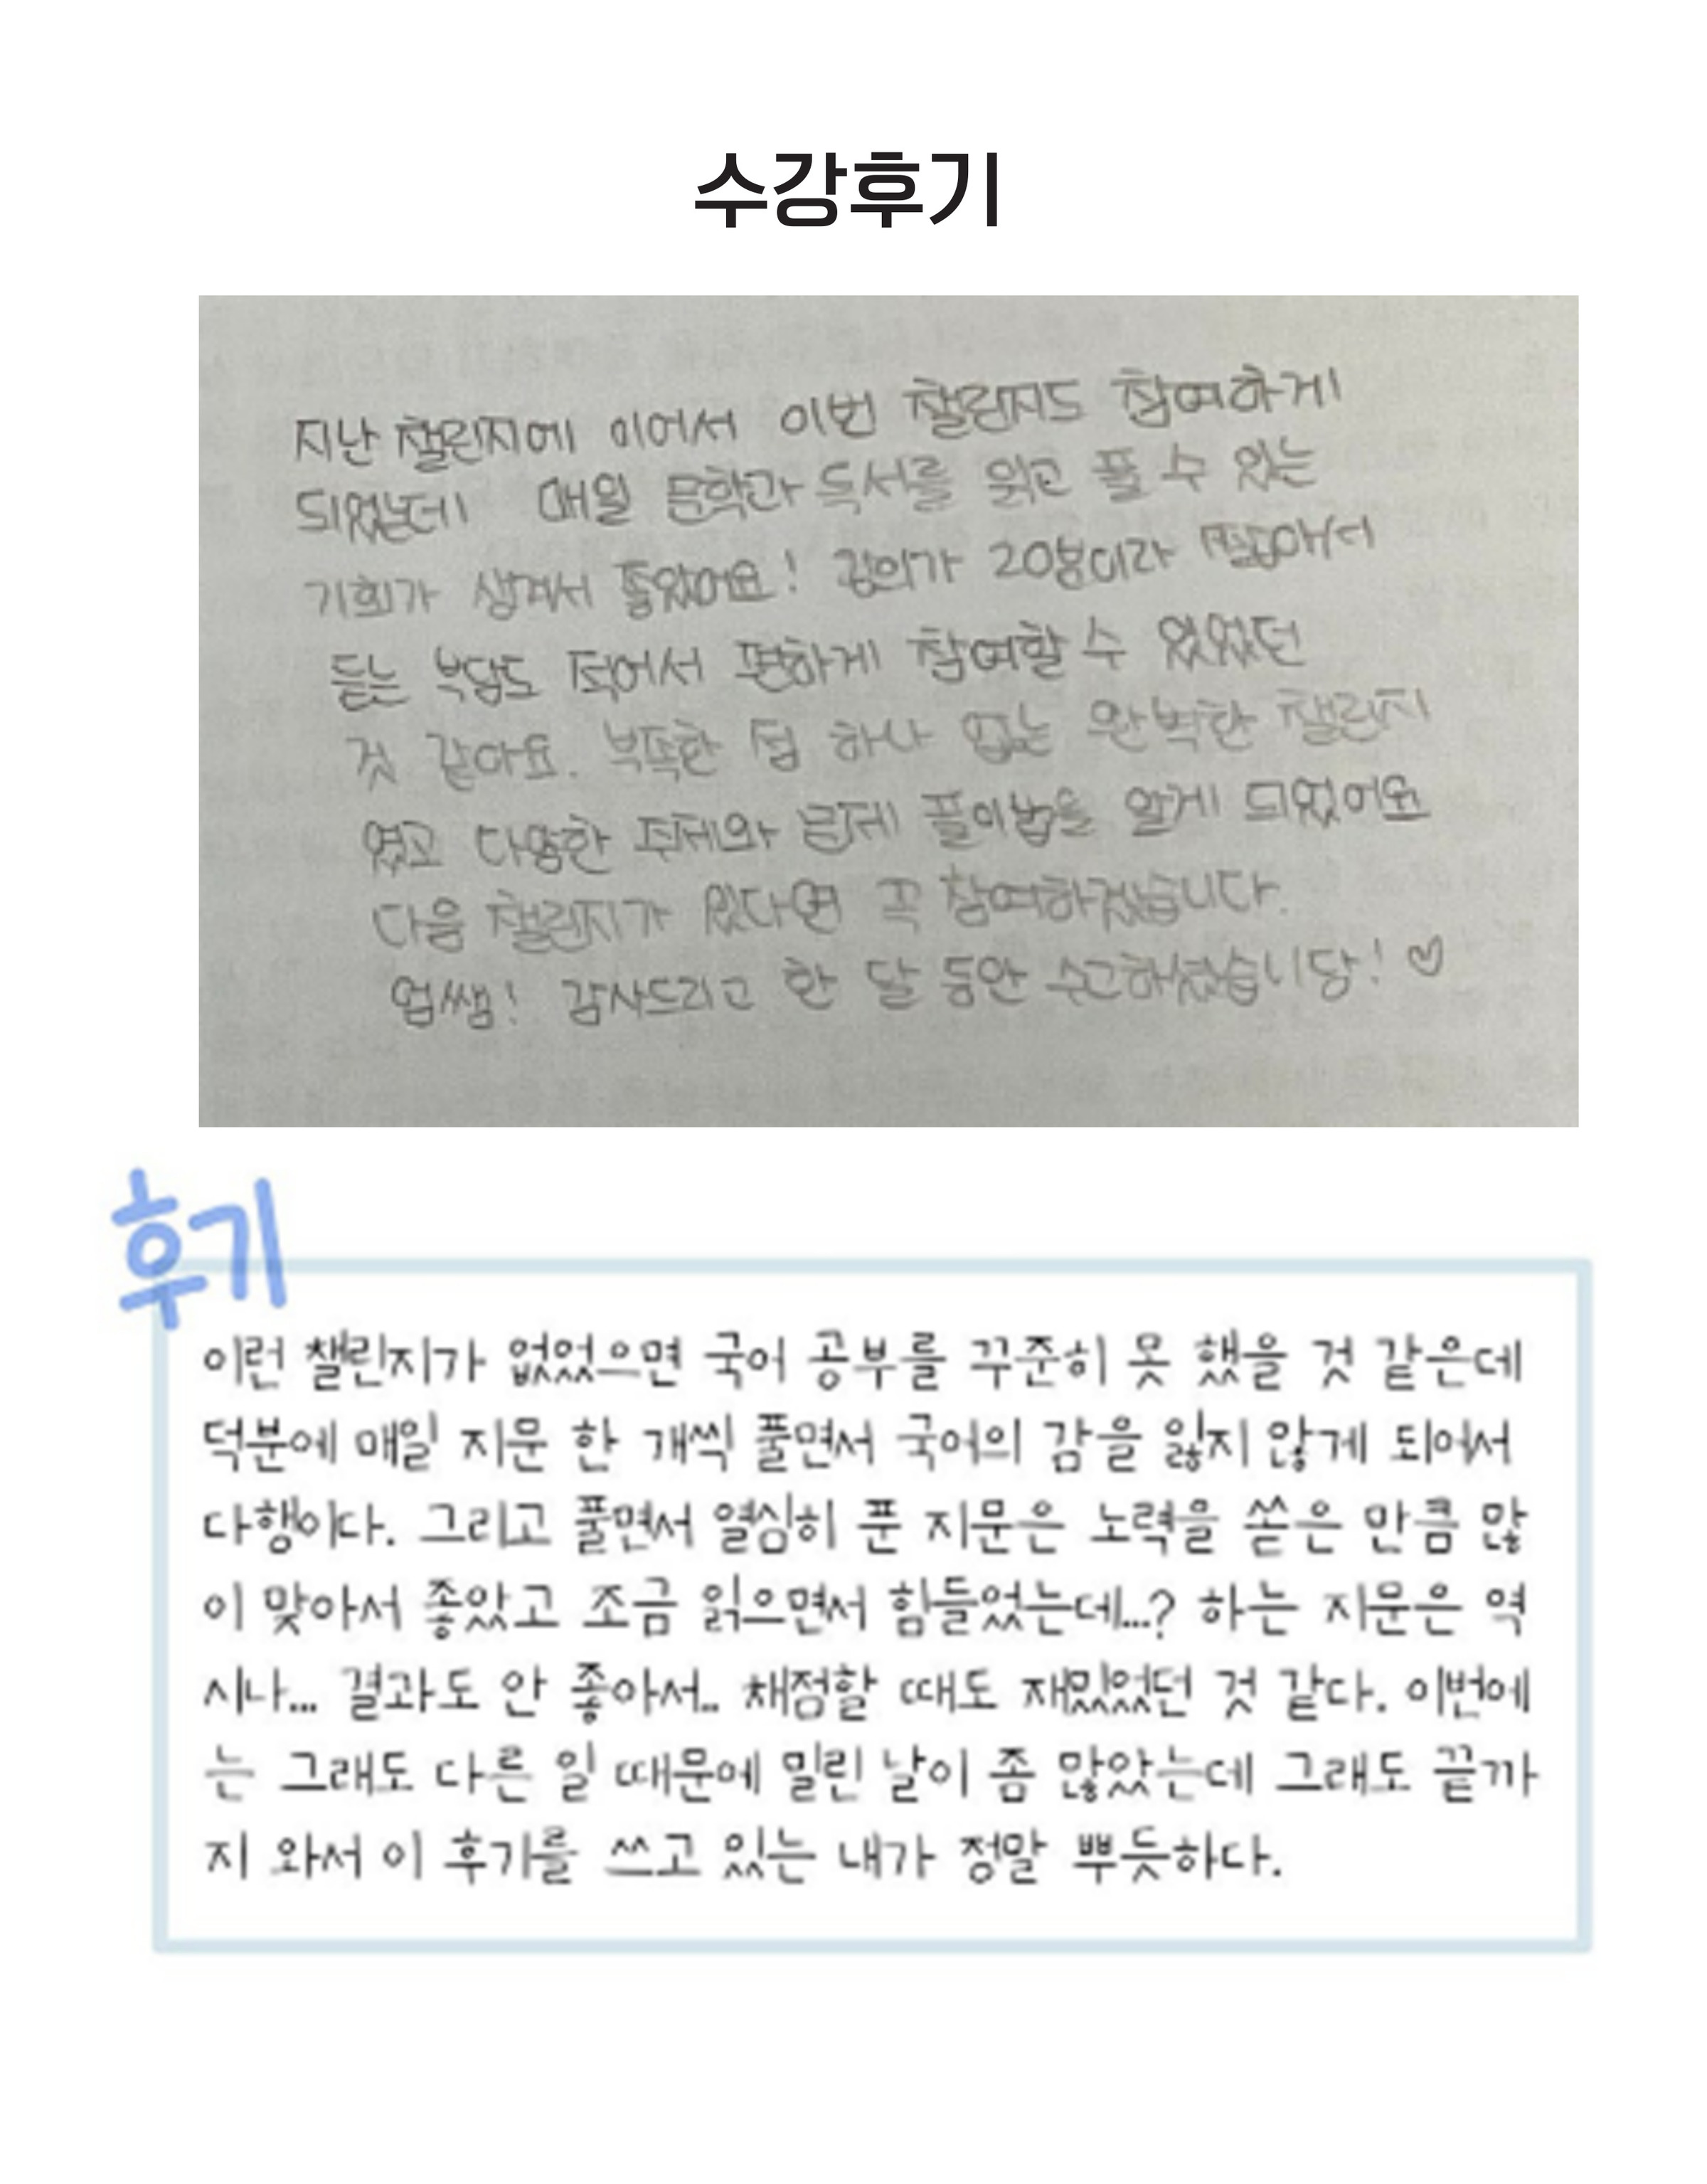 수강후기
지난 챌린지에 이어서 이번 챌린지도 참여하게
되었는데 매일 문학과 독서를 읽고 풀 수 있는
기회가 생겨서 좋았어요! 강의가 20분이라 짧아서
듣는 부담도 적어서 편하게 참여할 수 있었던
것 같아요. 부족한 점 하나 없는 완벽한 챌린지
였고 다양한 주제와 문제 풀이법을 알게 되었어요
다음 챌린지가 있다면 꼭 참여하겠습니다.
엄쌤! 감사드리고 한 달 동안 수고하셨습니당! ♡
후기
이런 챌린지가 없었으면 국어 공부를 꾸준히 못 했을 것 같은데
덕분에 매일 지문 한 개씩 풀면서 국어의 감을 잃지 않게 되어서
다행이다. 그리고 풀면서 열심히 푼 지문은 노력을 쏟은 만큼 많
이 맞아서 좋았고 조금 읽으면서 힘들었는데...? 하는 지문은 역
시나... 결과도 안 좋아서.. 채점할 때도 재밌었던 것 같다. 이번에
는 그래도 다른 일 때문에 밀린 날이 좀 많았는데 그래도 끝까
지 와서 이 후기를 쓰고 있는 내가 정말 뿌듯하다.